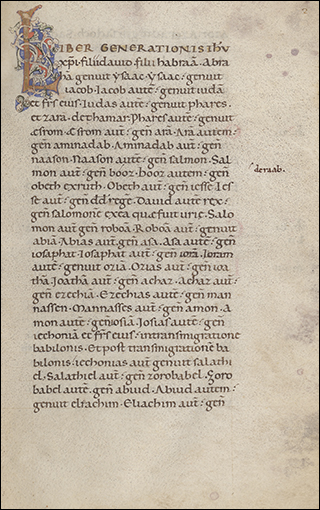 LIBER GENERATIONIS IHV
xp̄i filii dauid filii habraā. Abra
hā genuit ysaac. ysaac: genuit
iacob. Iacob autē: genuit iudā
et fr̄s eius. Iudas autē: genuit phares.
et zarā. de thamar. Phares autē: genuit
esrom. Esrom aūt: geñ arā. Arā autem:
geñ aminadab. Aminadab aūt: geñ
naason. Naason autē: geñ salmon. Sal
mon aūt: geñ booz. booz autem: geñ
deraab.
obeth ex ruth. Obeth aūt: geñ iesse. Ies
se aūt: geñ dd̄ regē. Dauid autē rex:
geñ salomonē ex ea que fuit urie. Salo
mon aūt: geñ roboā. Roboā aūt: genuit
abiā. Abias aūt: geñ asa. asa autē: geñ
iosaphat. Iosaphat aūt: geñ iorā. Ioram
autē: genuit oziā. Ozias aūt: geñ ioa
thā. Ioathā aūt: geñ achaz. Achaz aūt:
geñ ezechiā. Ezechias aūt: geñ man
nassen. Mannasses aūt: geñ amon. A
mon autē: geñ iosiā. Iosias autē: geñ
iechoniā et fr̄s eius: in transmigratione
babilonis. Et post transmigrationē ba
bilonis: iechonias aūt genuit salathi
el. Salathiel aūt: geñ zorobabel. Zoro
babel autē. geñ abiud. Abiud autem:
genuit eliachim. Eliachim aūt: geñ